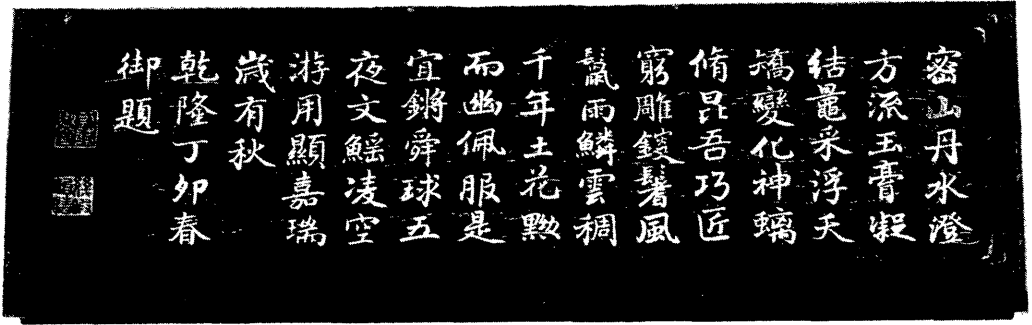 密山丹水澄
方流玉膏凝
結鼂采浮夭
矯變化神螭
脩昆吾巧匠
窮雕鎪鬐風
鬣雨鱗雲稠
千年土花黝
而幽佩服是
宜鏘舜球五
夜文鰩凌空
游用顯嘉瑞
歲有秋
乾隆丁卯春
御題